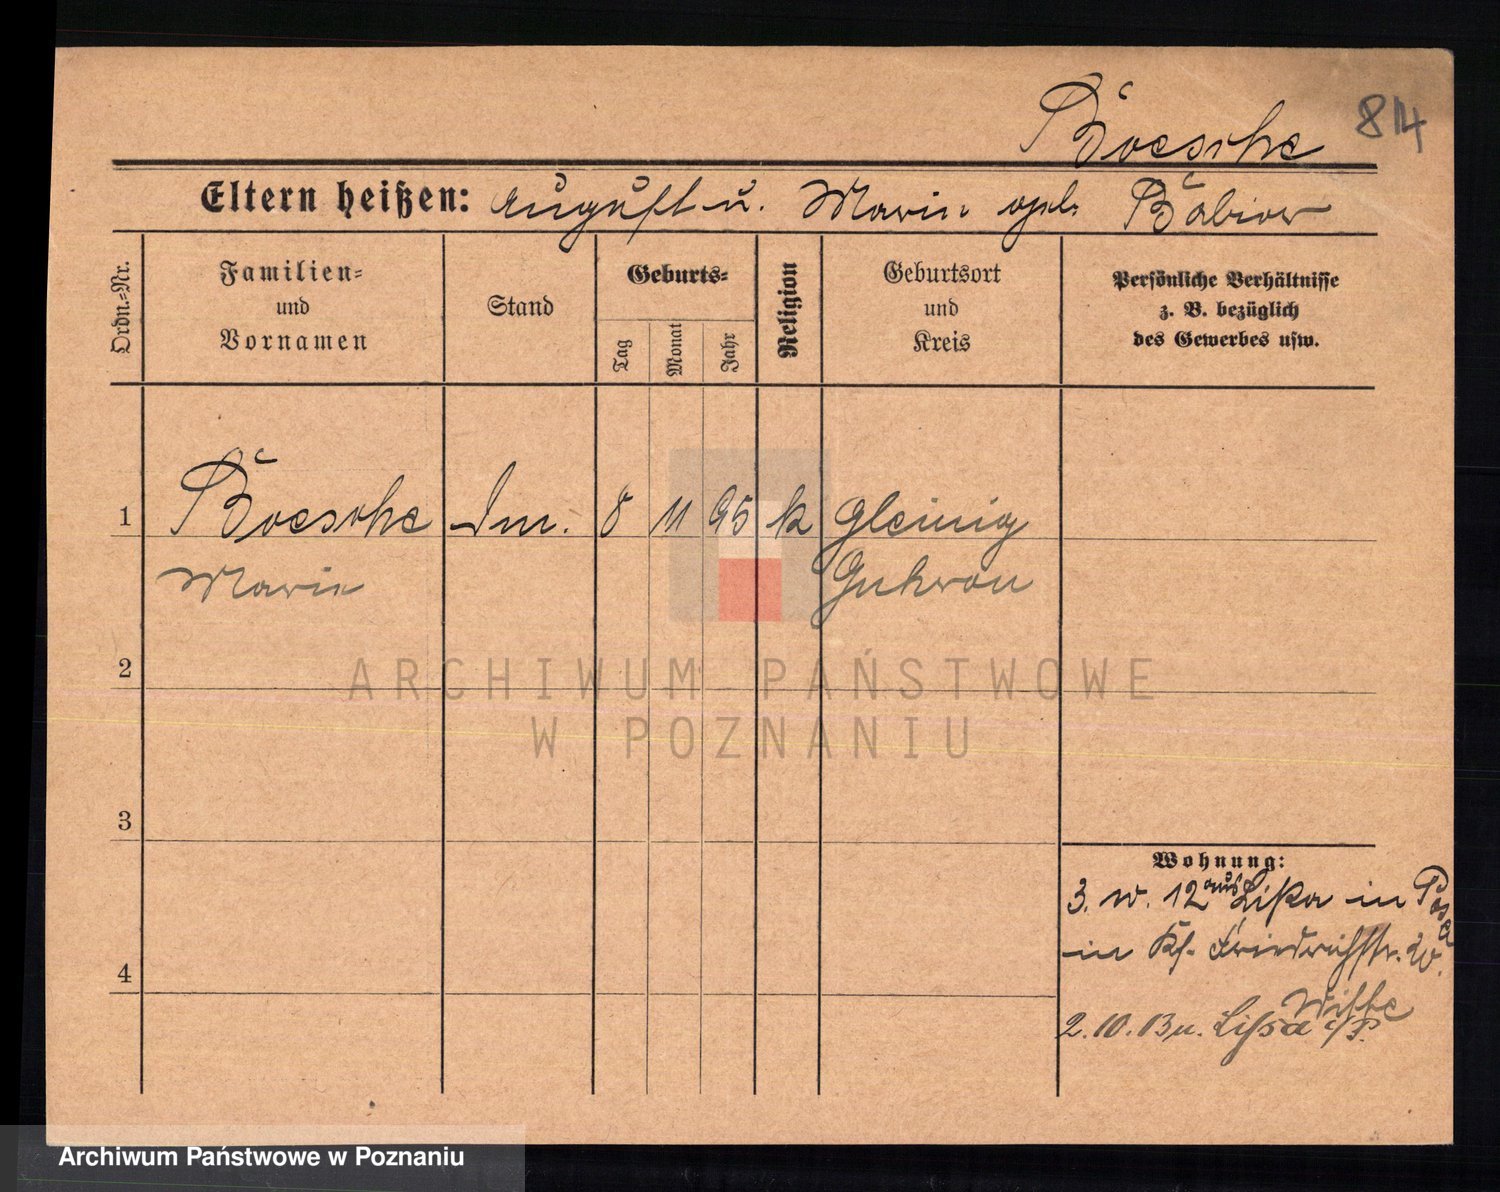 Boesche 814
Eltern heißen: August u. Marie geb. Babior
Ordn.=Nr.
Familien=
und
Vornamen
Stand
Geburts=
Tag
Monat
Jahr
Religion
Geburtsort
und
Kreis
Persönliche Verhältnisse
z. B. bezüglich
des Gewerbes usw.
1 Boesche Dm. 8 11 95 k Gleinig
Marie Guhrau
2
ARCHIWUM PAŃSTWOWE
W POZNANIU
3
4
Wohnung:
3. IV. 12 aus Lissa in Posen
in Friedrichstr. 20.
Witte
2. 10. 13 n. Lissa i/P.
Archiwum Państwowe w Poznaniu